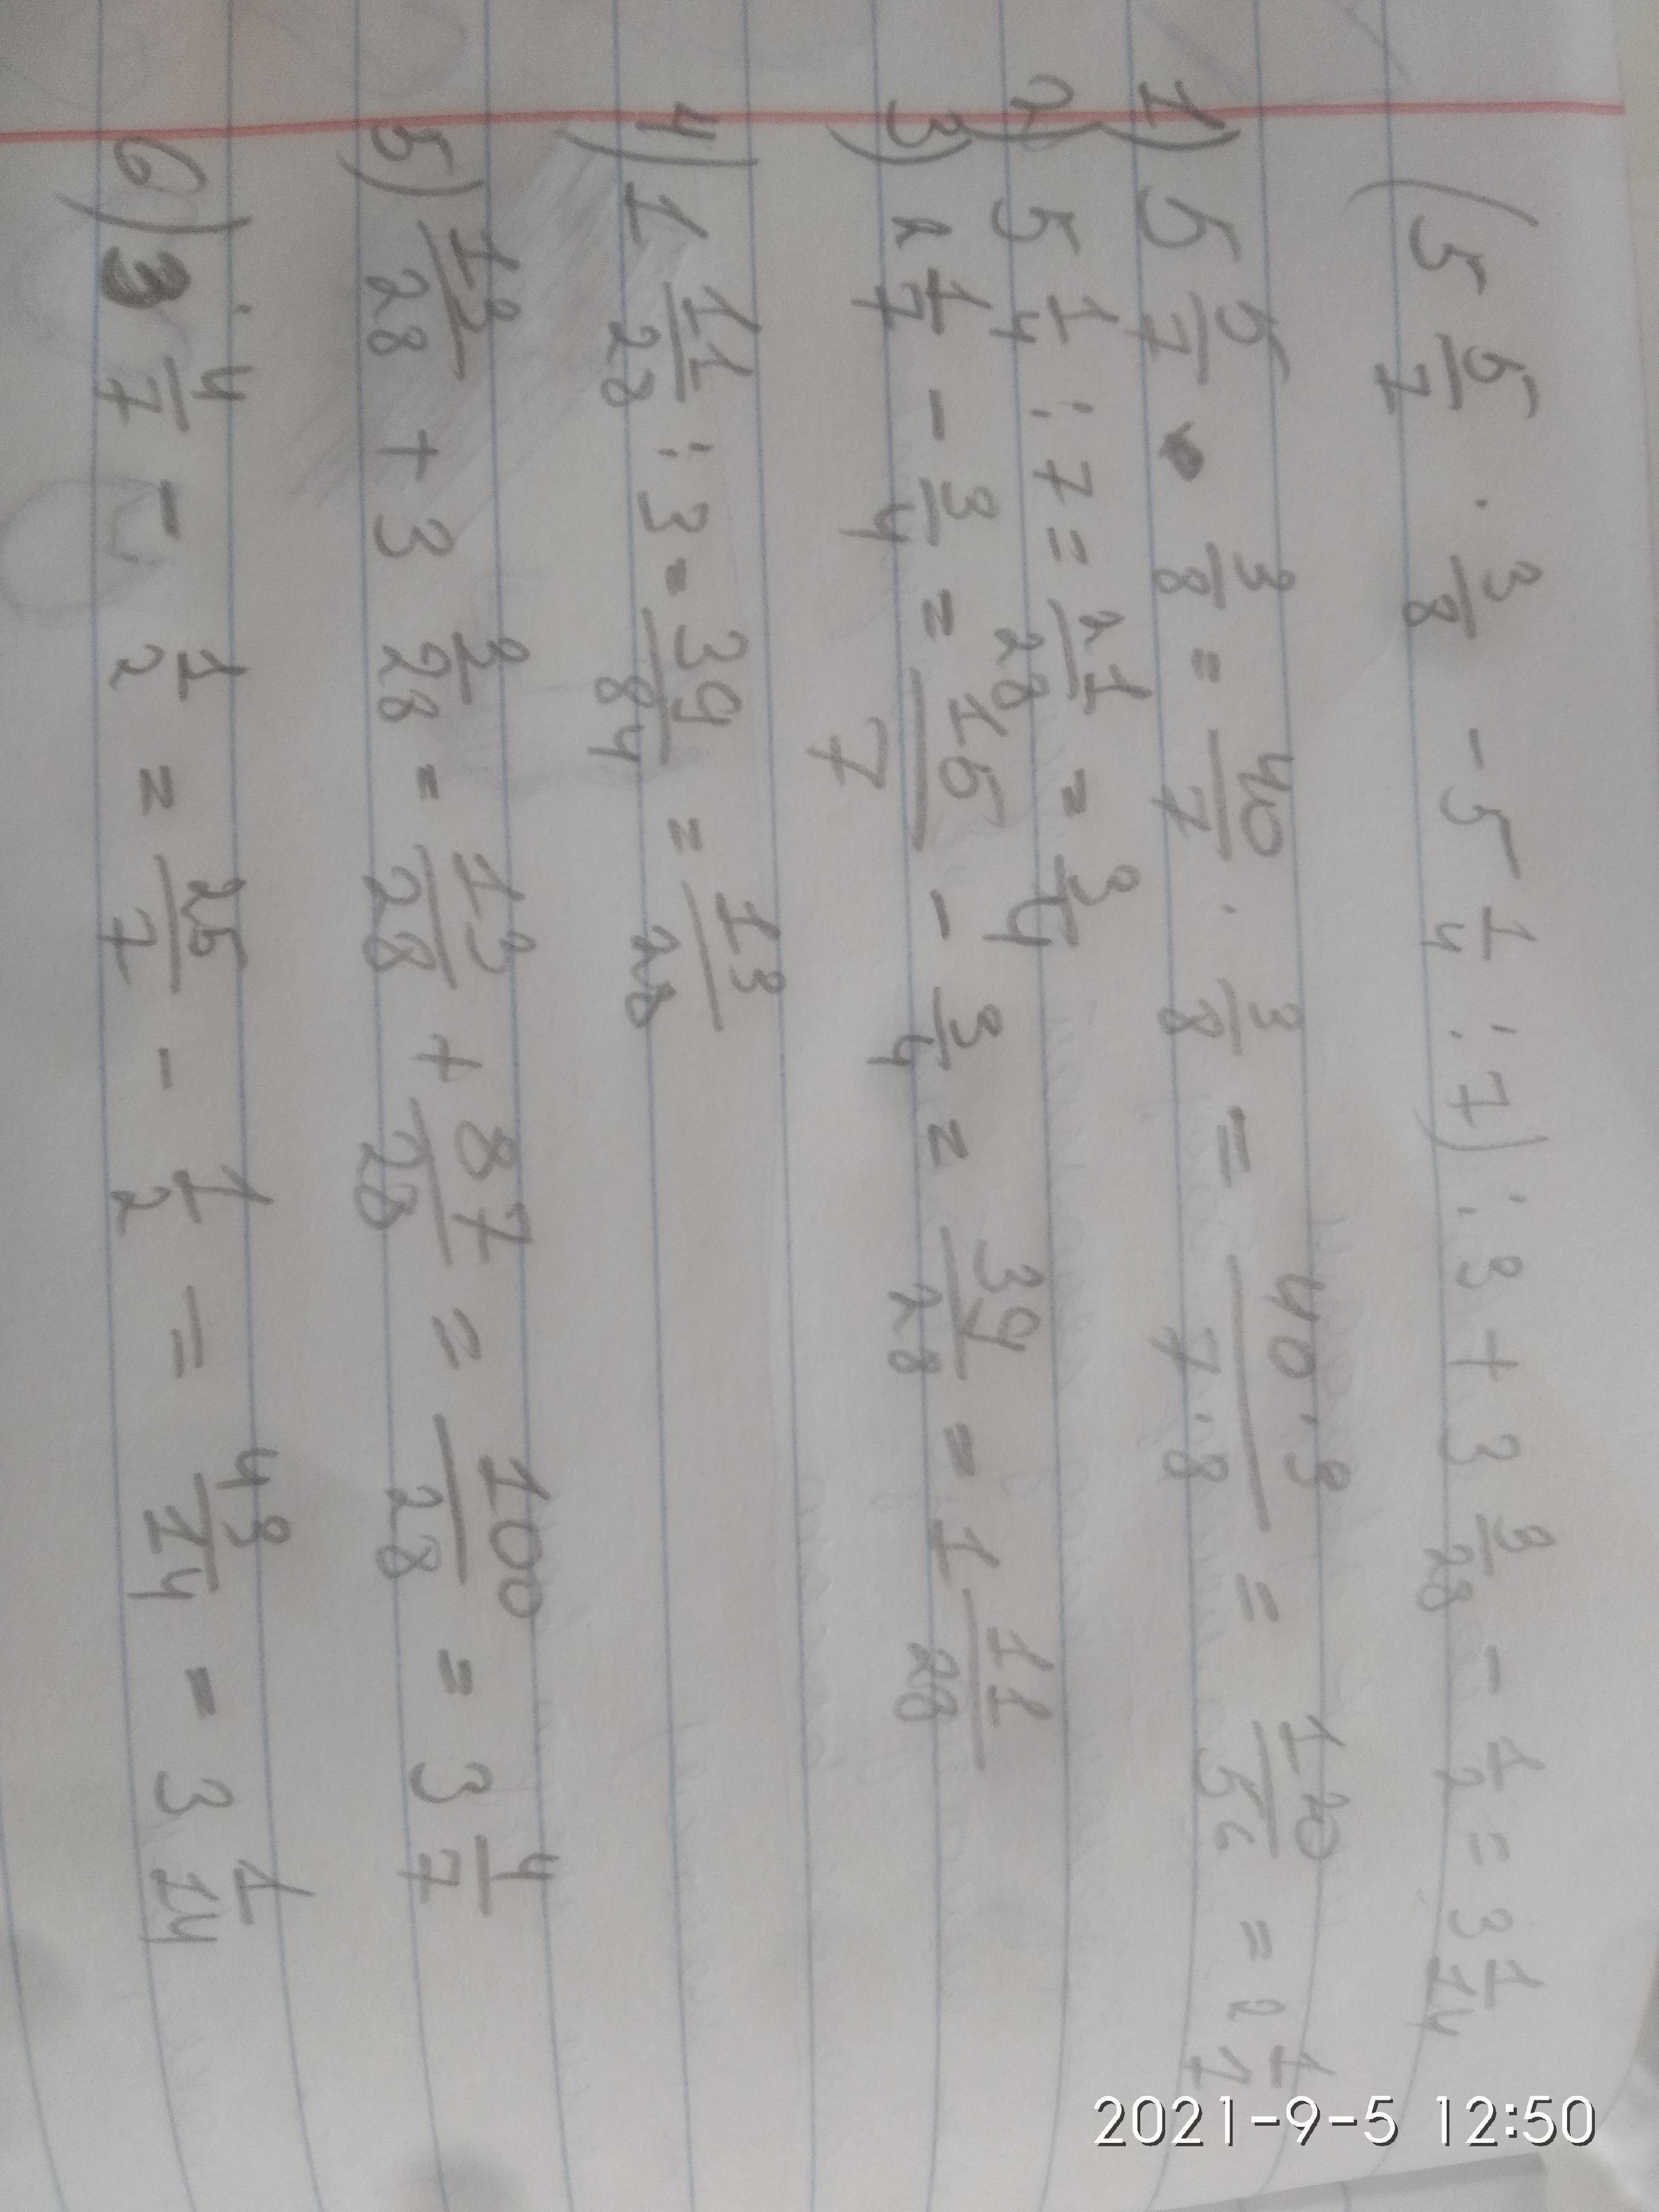 (5 5/7 · 3/8 - 5 1/4 : 7) : 3 + 3 3/28 - 1/2 = 3 1/14
1) 5 5/7 · 3/8 = 40/7 · 3/8 = 40·3/7·8 = 120/56 = 2 1/7
2) 5 1/4 : 7 = 21/28 = 3/4
3) 2 1/7 - 3/4 = 15/7 - 3/4 = 39/28 = 1 11/28
4) 1 11/28 : 3 = 39/84 = 13/28
5) 13/28 + 3 3/28 = 13/28 + 87/28 = 100/28 = 3 4/7
6) 3 4/7 - 1/2 = 25/7 - 1/2 = 43/14 = 3 1/14
2021-9-5 12:50